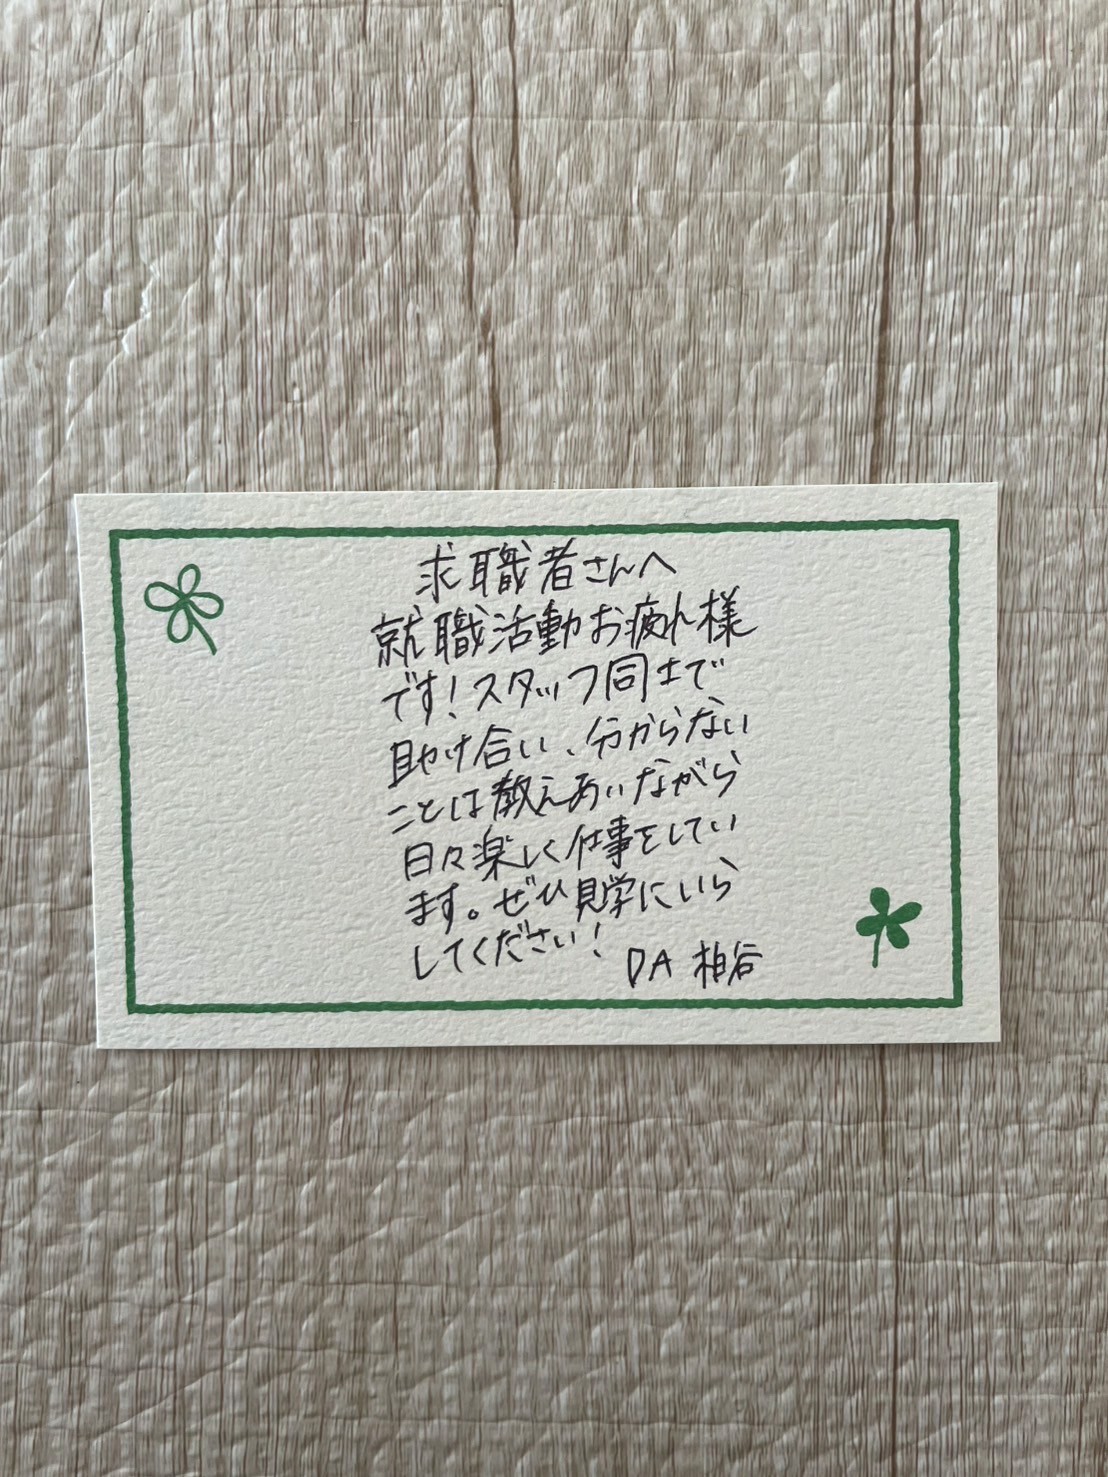 求職者さんへ
就職活動お疲れ様
です！スタッフ同士で
助け合い、分からない
ことは教えあいながら
日々楽しく仕事をしてい
ます。ぜひ見学にいら
してください！
DA 柏谷